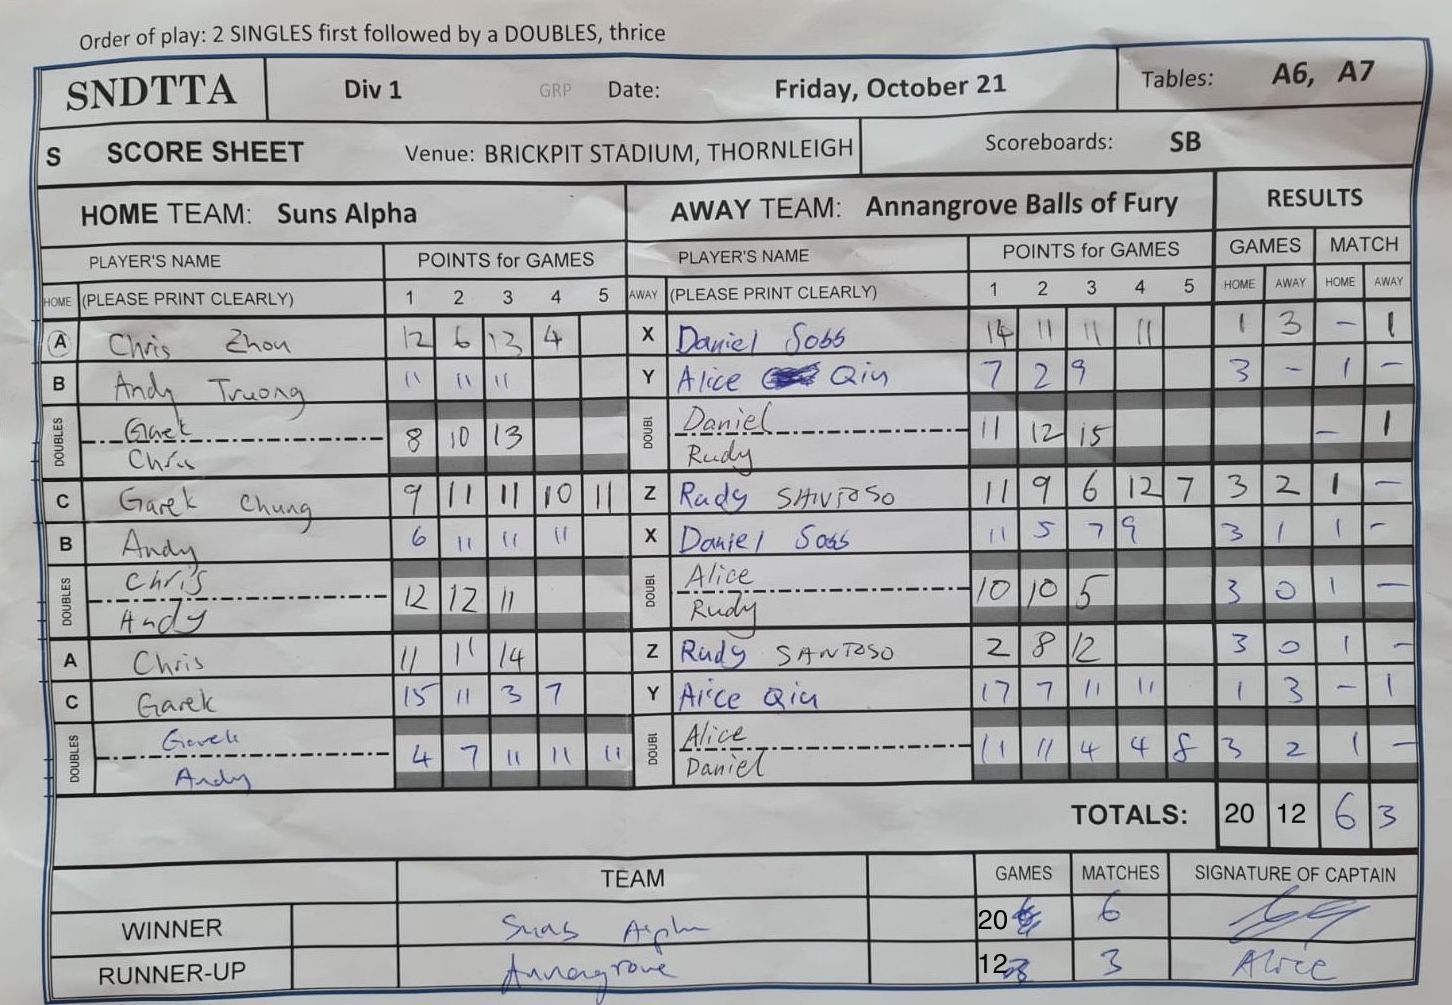 Order of play: 2 SINGLES first followed by a DOUBLES, thrice
SNDTTA Div 1 GRP Date: Friday, October 21 Tables: A6, A7
S SCORE SHEET Venue: BRICKPIT STADIUM, THORNLEIGH Scoreboards: SB
HOME TEAM: Suns Alpha AWAY TEAM: Annangrove Balls of Fury RESULTS
PLAYER'S NAME POINTS for GAMES PLAYER'S NAME POINTS for GAMES GAMES MATCH
HOME (PLEASE PRINT CLEARLY) 1 2 3 4 5 AWAY (PLEASE PRINT CLEARLY) 1 2 3 4 5 HOME AWAY HOME AWAY
A Chris Zhou 12 6 13 4 X Daniel Soss 14 11 11 11 1 3 - 1
B Andy Truong 11 11 11 Y Alice Qiu 7 2 9 3 - 1 -
DOUBLES Garek 8 10 13 DOUBL Daniel 11 12 15 - 1
Chris Rudy
C Garek Chung 9 11 11 10 11 Z Rudy SANTOSO 11 9 6 12 7 3 2 1 -
B Andy 6 11 11 11 X Daniel Soss 11 5 7 9 3 1 1 -
DOUBLES Chris 12 12 11 DOUBL Alice 10 10 5 3 0 1 -
Andy Rudy
A Chris 11 11 14 Z Rudy SANTOSO 2 8 12 3 0 1 -
C Garek 15 11 3 7 Y Alice Qiu 17 7 11 11 1 3 - 1
DOUBLES Garek 4 7 11 11 11 DOUBL Alice 11 11 4 4 8 3 2 1 -
Andy Daniel
TOTALS: 20 12 6 3
TEAM GAMES MATCHES SIGNATURE OF CAPTAIN
WINNER Suns Alpha 20 6
RUNNER-UP Annangrove 12 3 Alice